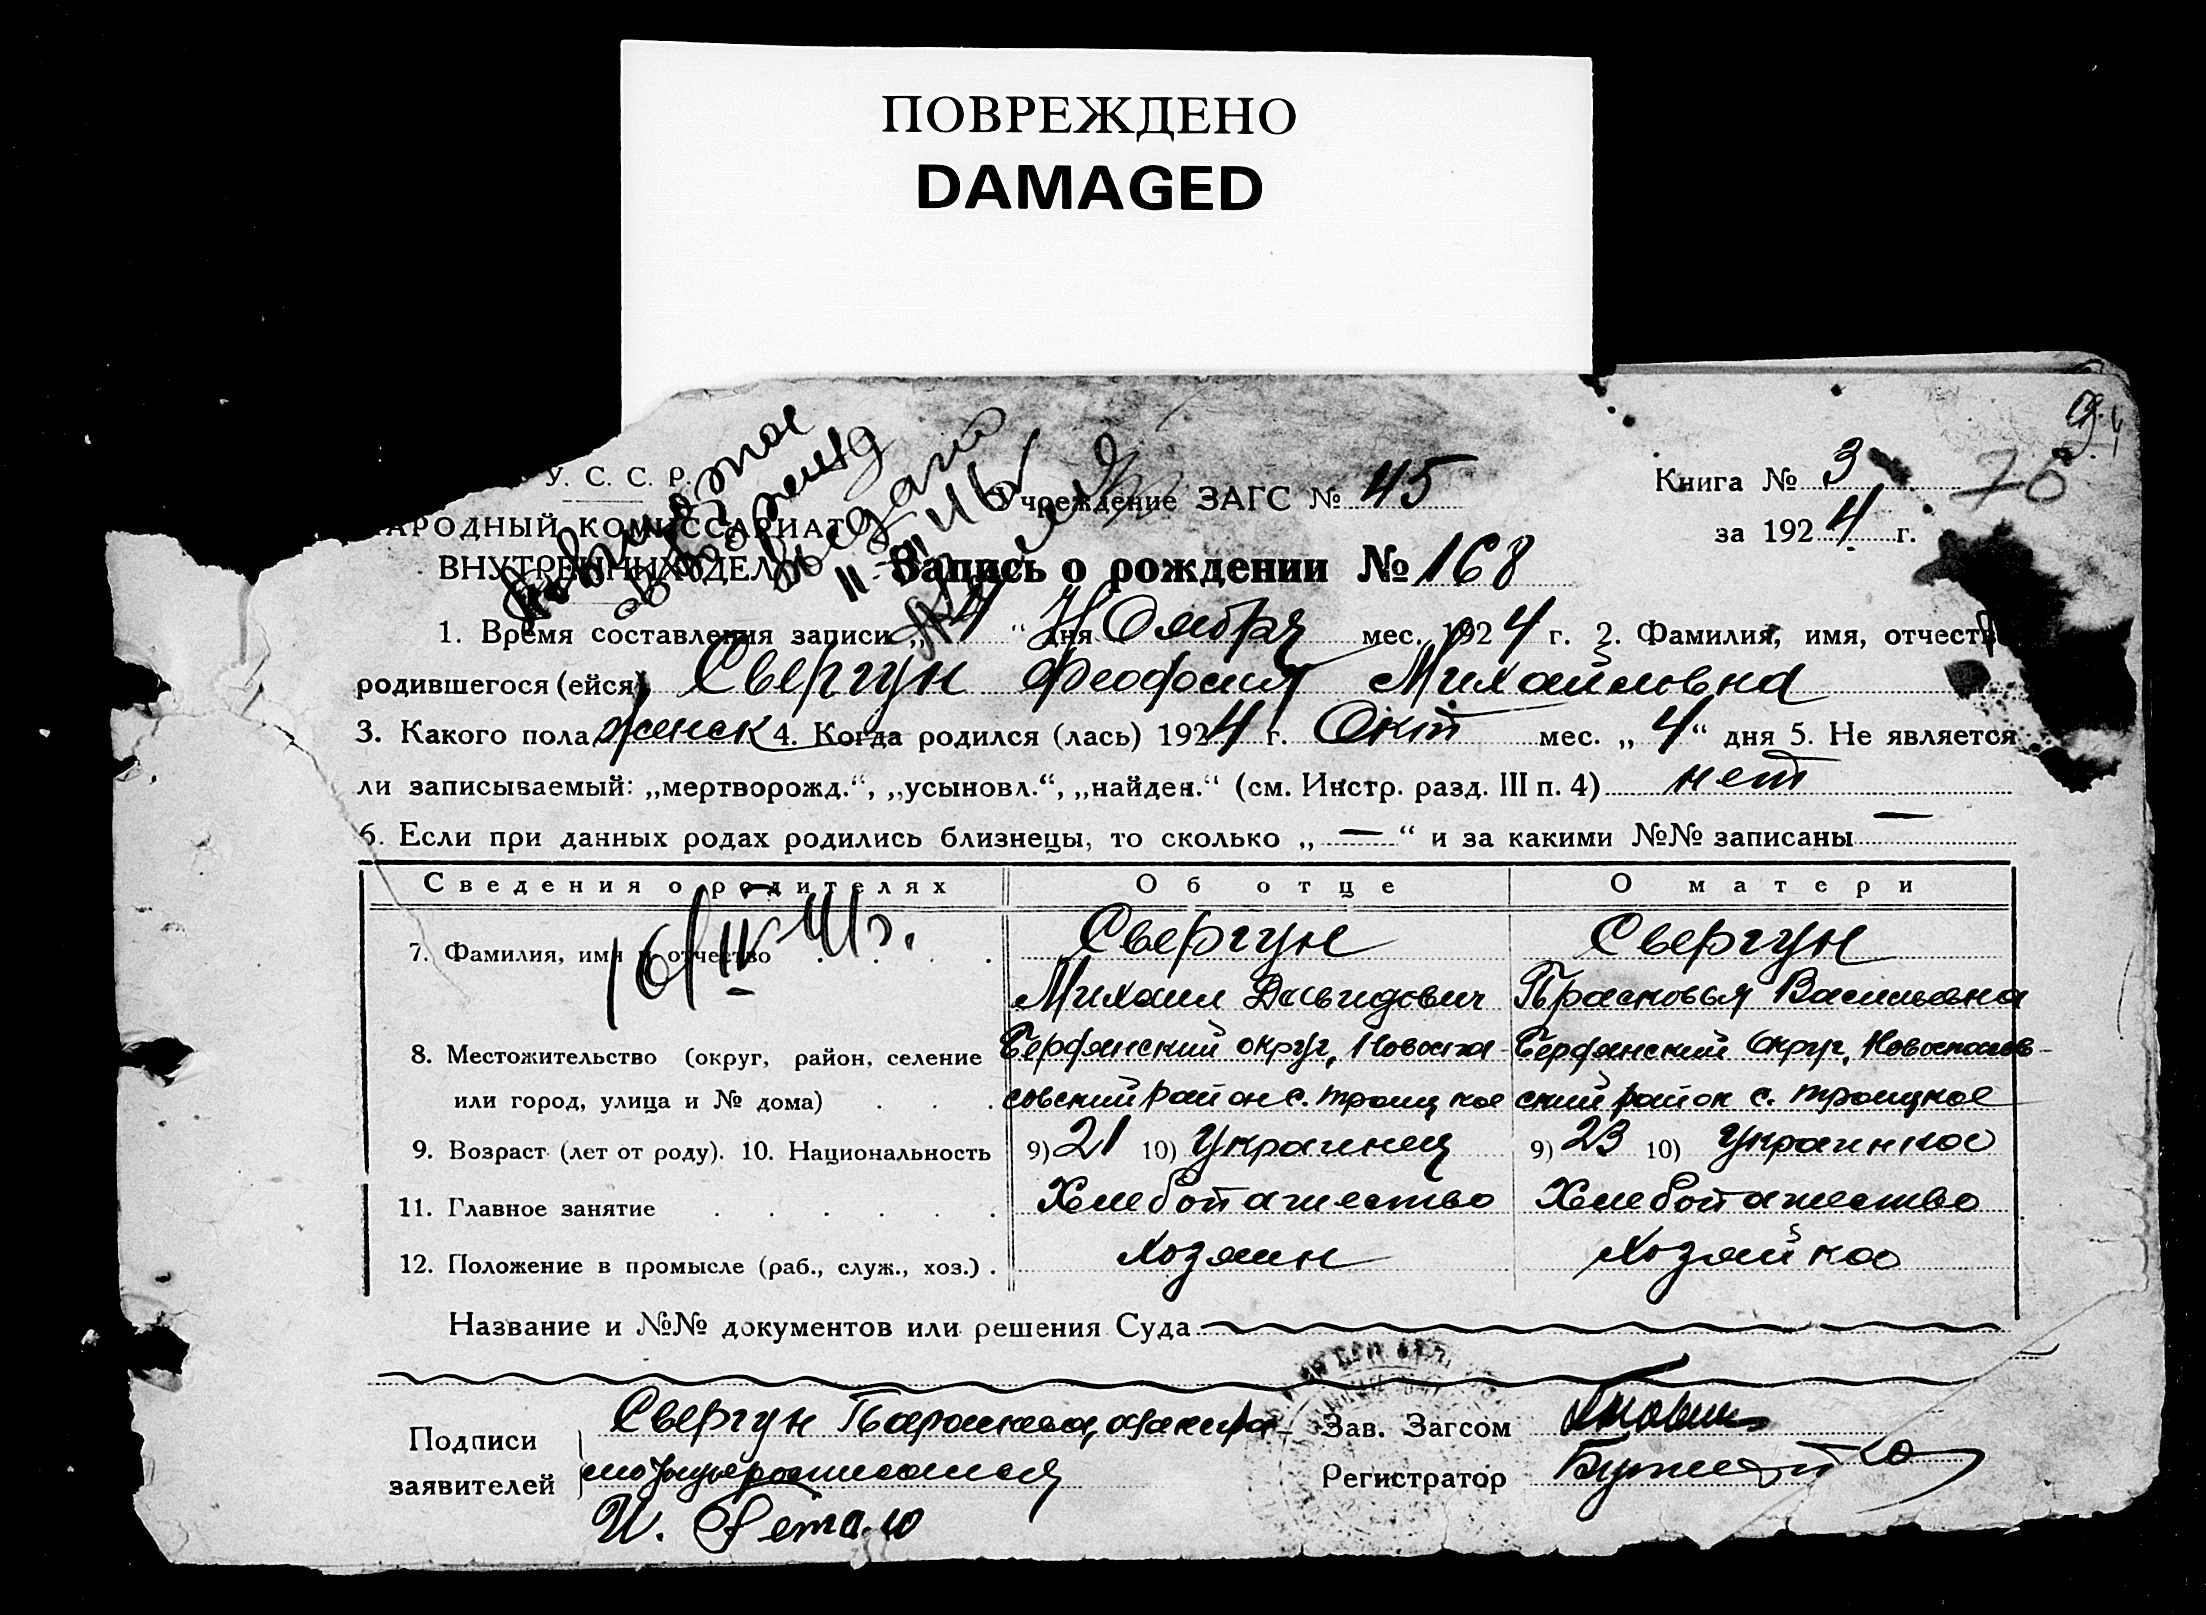 ПОВРЕЖДЕНО
DAMAGED
У. С. С. Р.
АРОДНЫЙ КОМИССАРИАТ
ВНУТРЕННИХ ДЕЛ
Повторное
выдано
Учреждение ЗАГС № 45
Книга № 3
70
за 1924 г.
Запись о рождении № 168
1. Время составления записи „4“ дня Ноября мес. 1924 г. 2. Фамилия, имя, отчеств
родившегося (ейся) Свергун Феофосия Михайловна
3. Какого пола женск 4. Когда родился (лась) 1924 г. Окт мес. „4“ дня 5. Не является
ли записываемый: „мертворожд.“, „усыновл.“, „найден.“ (см. Инстр. разд. III п. 4) нет
6. Если при данных родах родились близнецы, то сколько „—“ и за какими №№ записаны —
Сведения о родителях Об отце О матери
16/IV 41 г.
7. Фамилия, имя и отчество Свергун Свергун
Михаил Давидович Прасковья Васильевна
8. Местожительство (округ, район, селение Бердянский округ, Новоспа- Бердянский Округ, Новоспасов-
или город, улица и № дома) совский район с. троицкое ский район с. троицкое
9. Возраст (лет от роду). 10. Национальность 9) 21 10) Украинец 9) 23 10) Украинка
11. Главное занятие Хлебопашество Хлебопашество
12. Положение в промысле (раб., служ., хоз.) хозяин хозяйка
Название и №№ документов или решения Суда
Подписи заявителей Свергун Параскева, а за негра-
мотную расписался
И.
Зав. Загсом
Регистратор